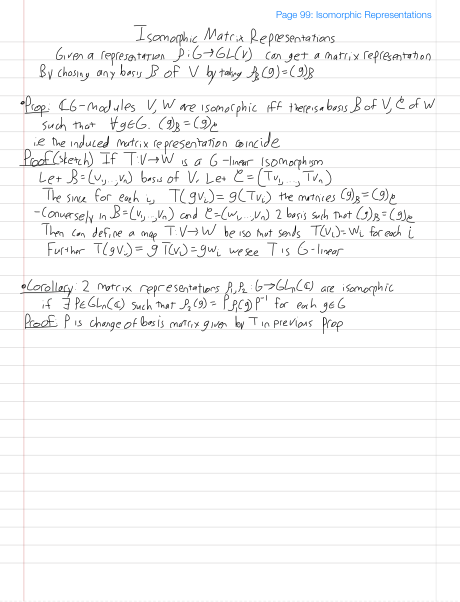 Page 99: Isomorphic Representations
Isomorphic Matrix Representations
Given a representation ρ:G→GL(V) can get a matrix representation
By chosing any basis B of V by taking ρ_B(g)=(g)_B
•Prop: ℂG-modules V, W are isomorphic iff there is a basis B of V, C of W
such that ∀g∈G. (g)_B = (g)_C
i.e the induced matrix representation coincide
Proof (sketch) If T:V→W is a G-linear Isomorphism
Let B=(v₁, ,vₙ) basis of V. Let C = (Tv₁, ..., Tvₙ)
The since for each i, T(gvᵢ) = g(Tvᵢ) the matrices (g)_B = (g)_C
-Conversely in B=(v₁, ..,vₙ) and C=(w₁, ..,wₙ) 2 basis such that (g)_B = (g)_C
Then can define a map T:V→W be iso that sends T(vᵢ)=wᵢ for each i
Further T(gvᵢ) = g T(vᵢ) = gwᵢ we see T is G-linear
•Corollary: 2 matrix representations ρ₁,ρ₂ : G→GLₙ(ℂ) are isomorphic
if ∃ P∈GLₙ(ℂ) such that ρ₂(g) = Pρ₁(g)P⁻¹ for each g∈G
Proof: P is change of basis matrix given by T in previous prop